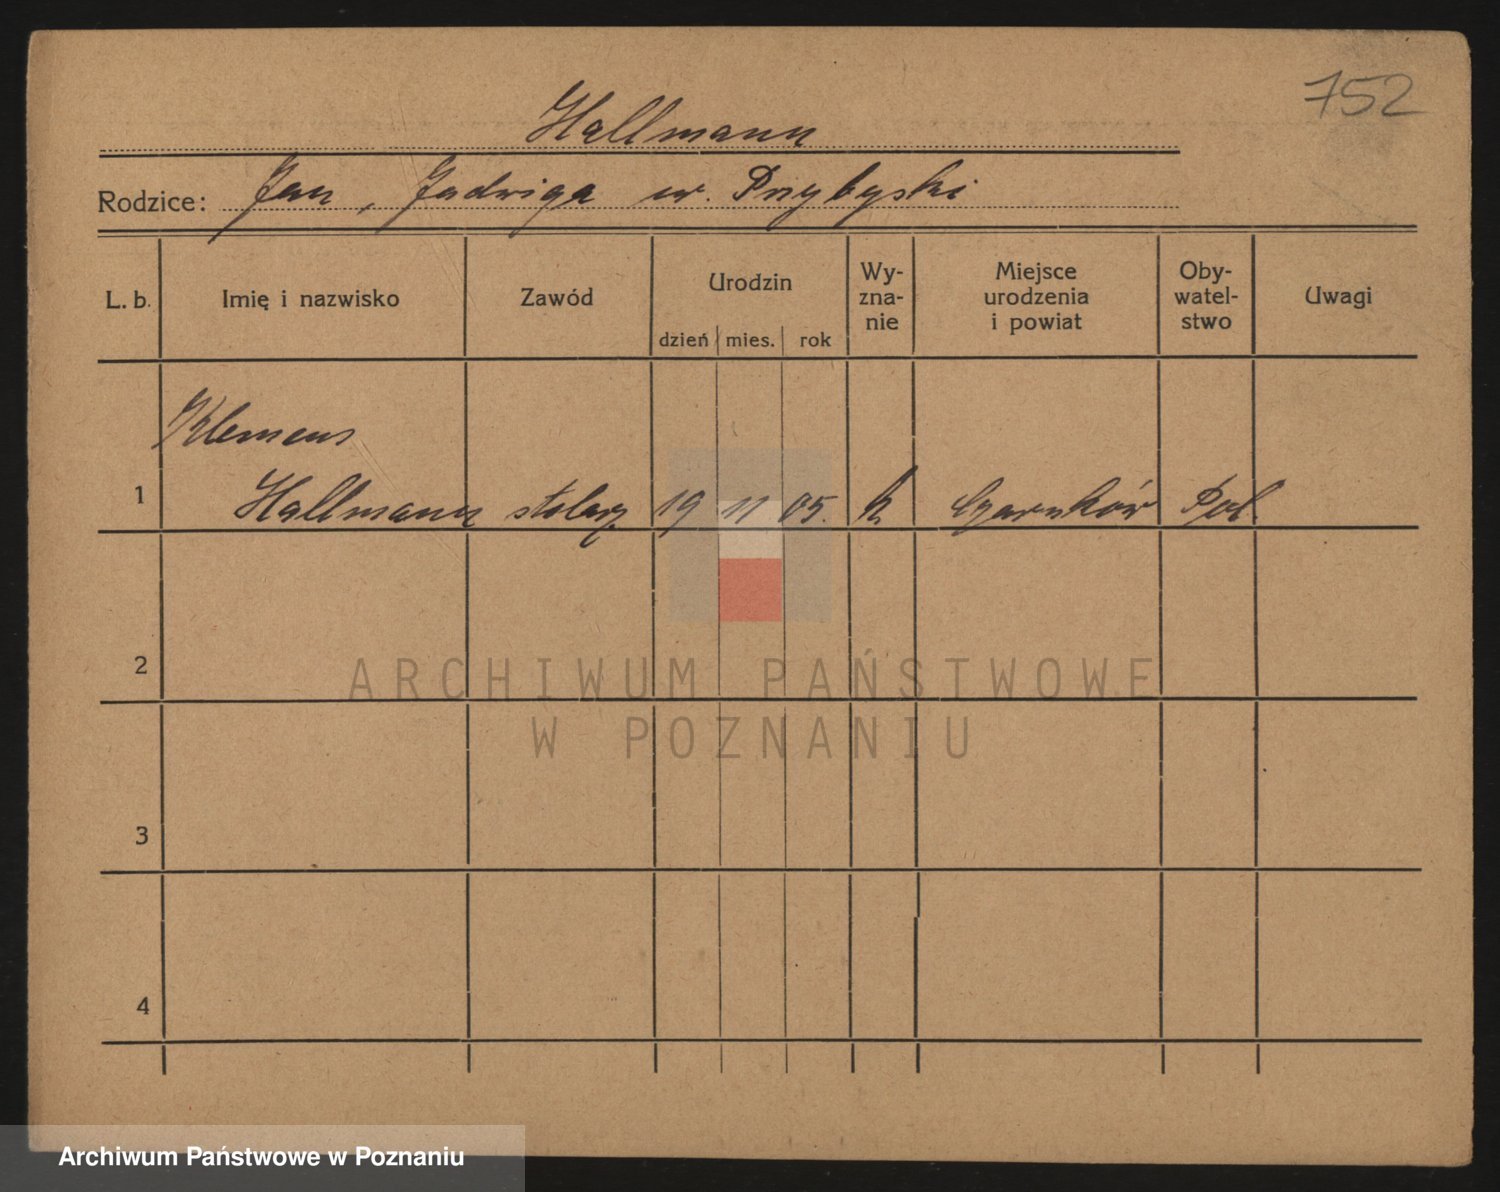 752
Hallmann
Rodzice: Jan, Jadwiga ur. Przybyski
L. b.
Imię i nazwisko
Zawód
Urodzin
dzień mies. rok
Wy-
zna-
nie
Miejsce
urodzenia
i powiat
Oby-
watel-
stwo
Uwagi
Klemens
1 Hallmann stolarz 19 11 05. k. Czarnków Pol.
2
ARCHIWUM PAŃSTWOWE
W POZNANIU
3
4
Archiwum Państwowe w Poznaniu